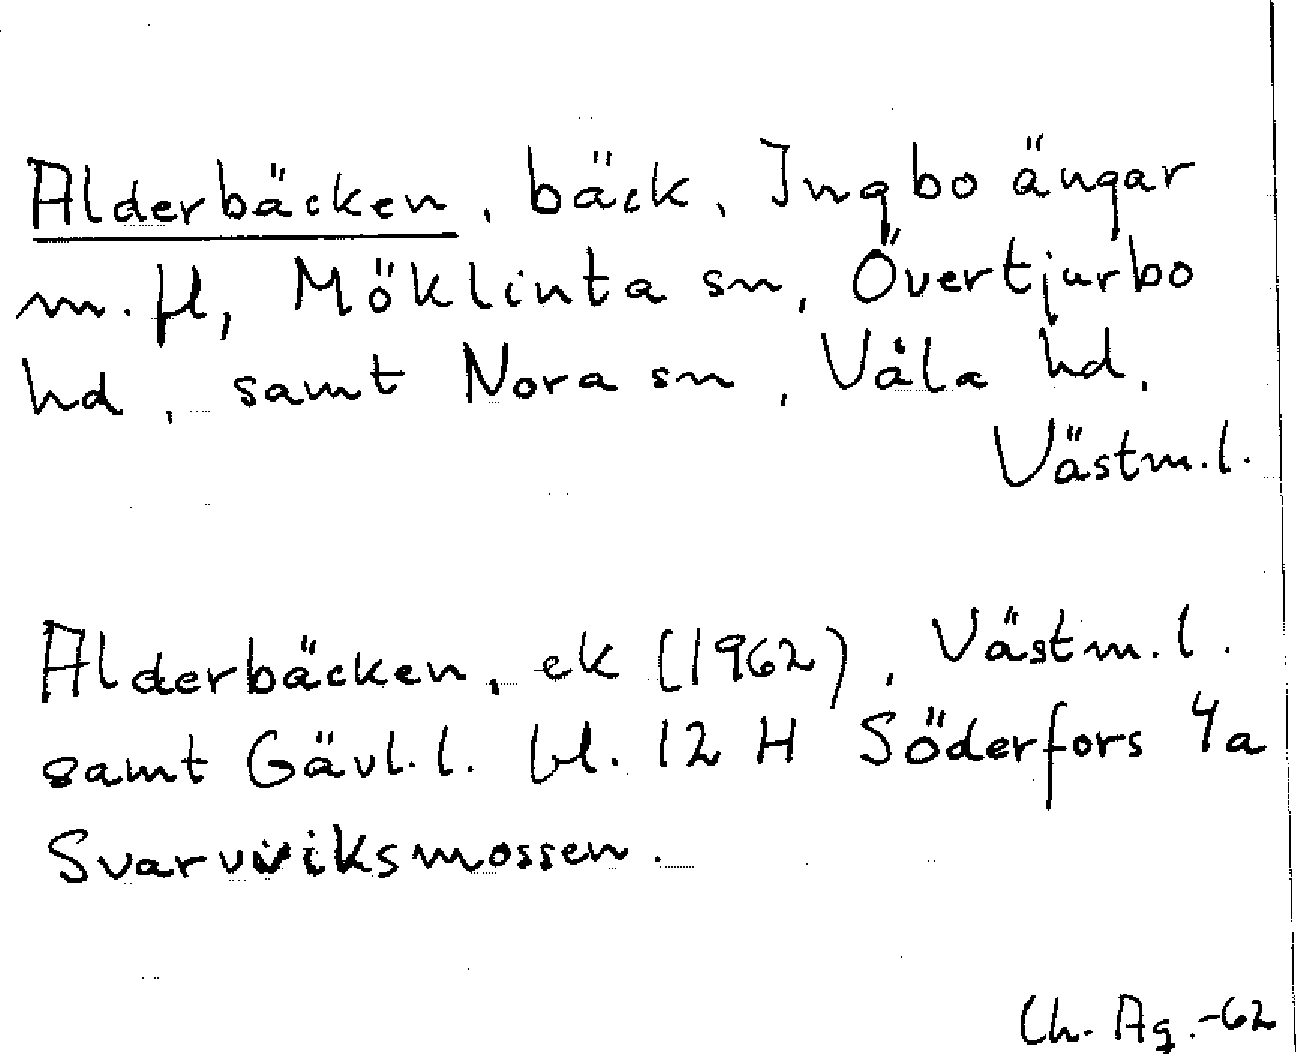 Alderbäcken, bäck, Ingbo ängar
m. fl, Möklinta sn, Övertjurbo
hd, samt Nora sn, Våla hd.
Västm.l.
Alderbäcken, ek (1962), Västm.l.
samt Gävl.l. bl. 12 H Söderfors 4a
Svarvviksmossen.
Ch. Ag.-62